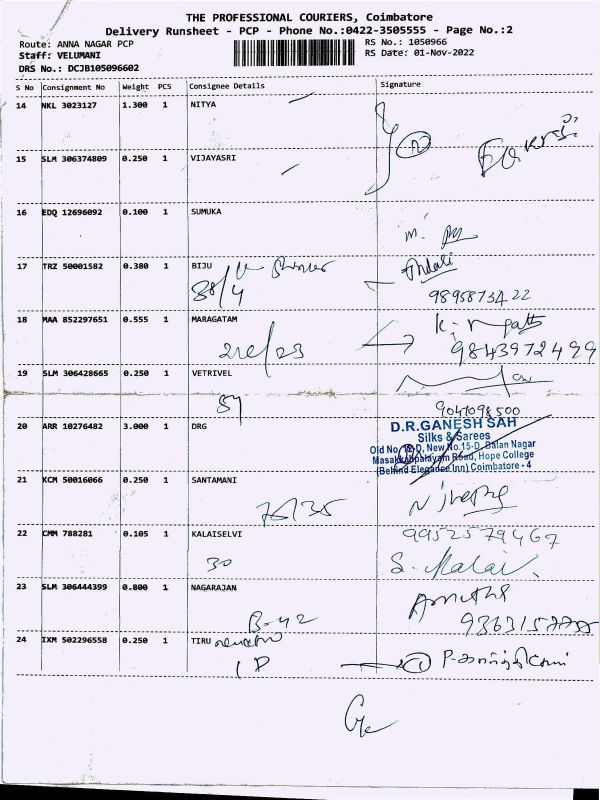 THE PROFESSIONAL COURIERS, Coimbatore
Delivery Runsheet - PCP - Phone No.:0422-3505555 - Page No.:2
Route: ANNA NAGAR PCP
RS No.: 1050966
Staff: VELUMANI
RS Date: 01-Nov-2022
DRS No.: DCJB105096602
S No Consignment No Weight PCS Consignee Details Signature
14 NKL 3023127 1.300 1 NITYA
15 SLM 306374809 0.250 1 VIJAYASRI
16 EDQ 12696092 0.100 1 SUMUKA
17 TRZ 50001582 0.380 1 BIJU
88/4
9895873422
18 MAA 852297651 0.555 1 MARAGATAM
212/23
9843972499
19 SLM 306428665 0.250 1 VETRIVEL
9047098500
20 ARR 10276482 3.000 1 DRG
D.R.GANESH SAH
Silks & Sarees
Old No. 12-D, New No.15-D, Balan Nagar
Masakkalipalayam Road, Hope College
(Behind Elegance Inn) Coimbatore - 4
21 KCM 50016066 0.250 1 SANTAMANI
76/35
22 CMM 788281 0.105 1 KALAISELVI
9952579467
30
S. Malai.
23 SLM 306444399 0.800 1 NAGARAJAN
B-42
24 IXM 502296558 0.250 1 TIRU